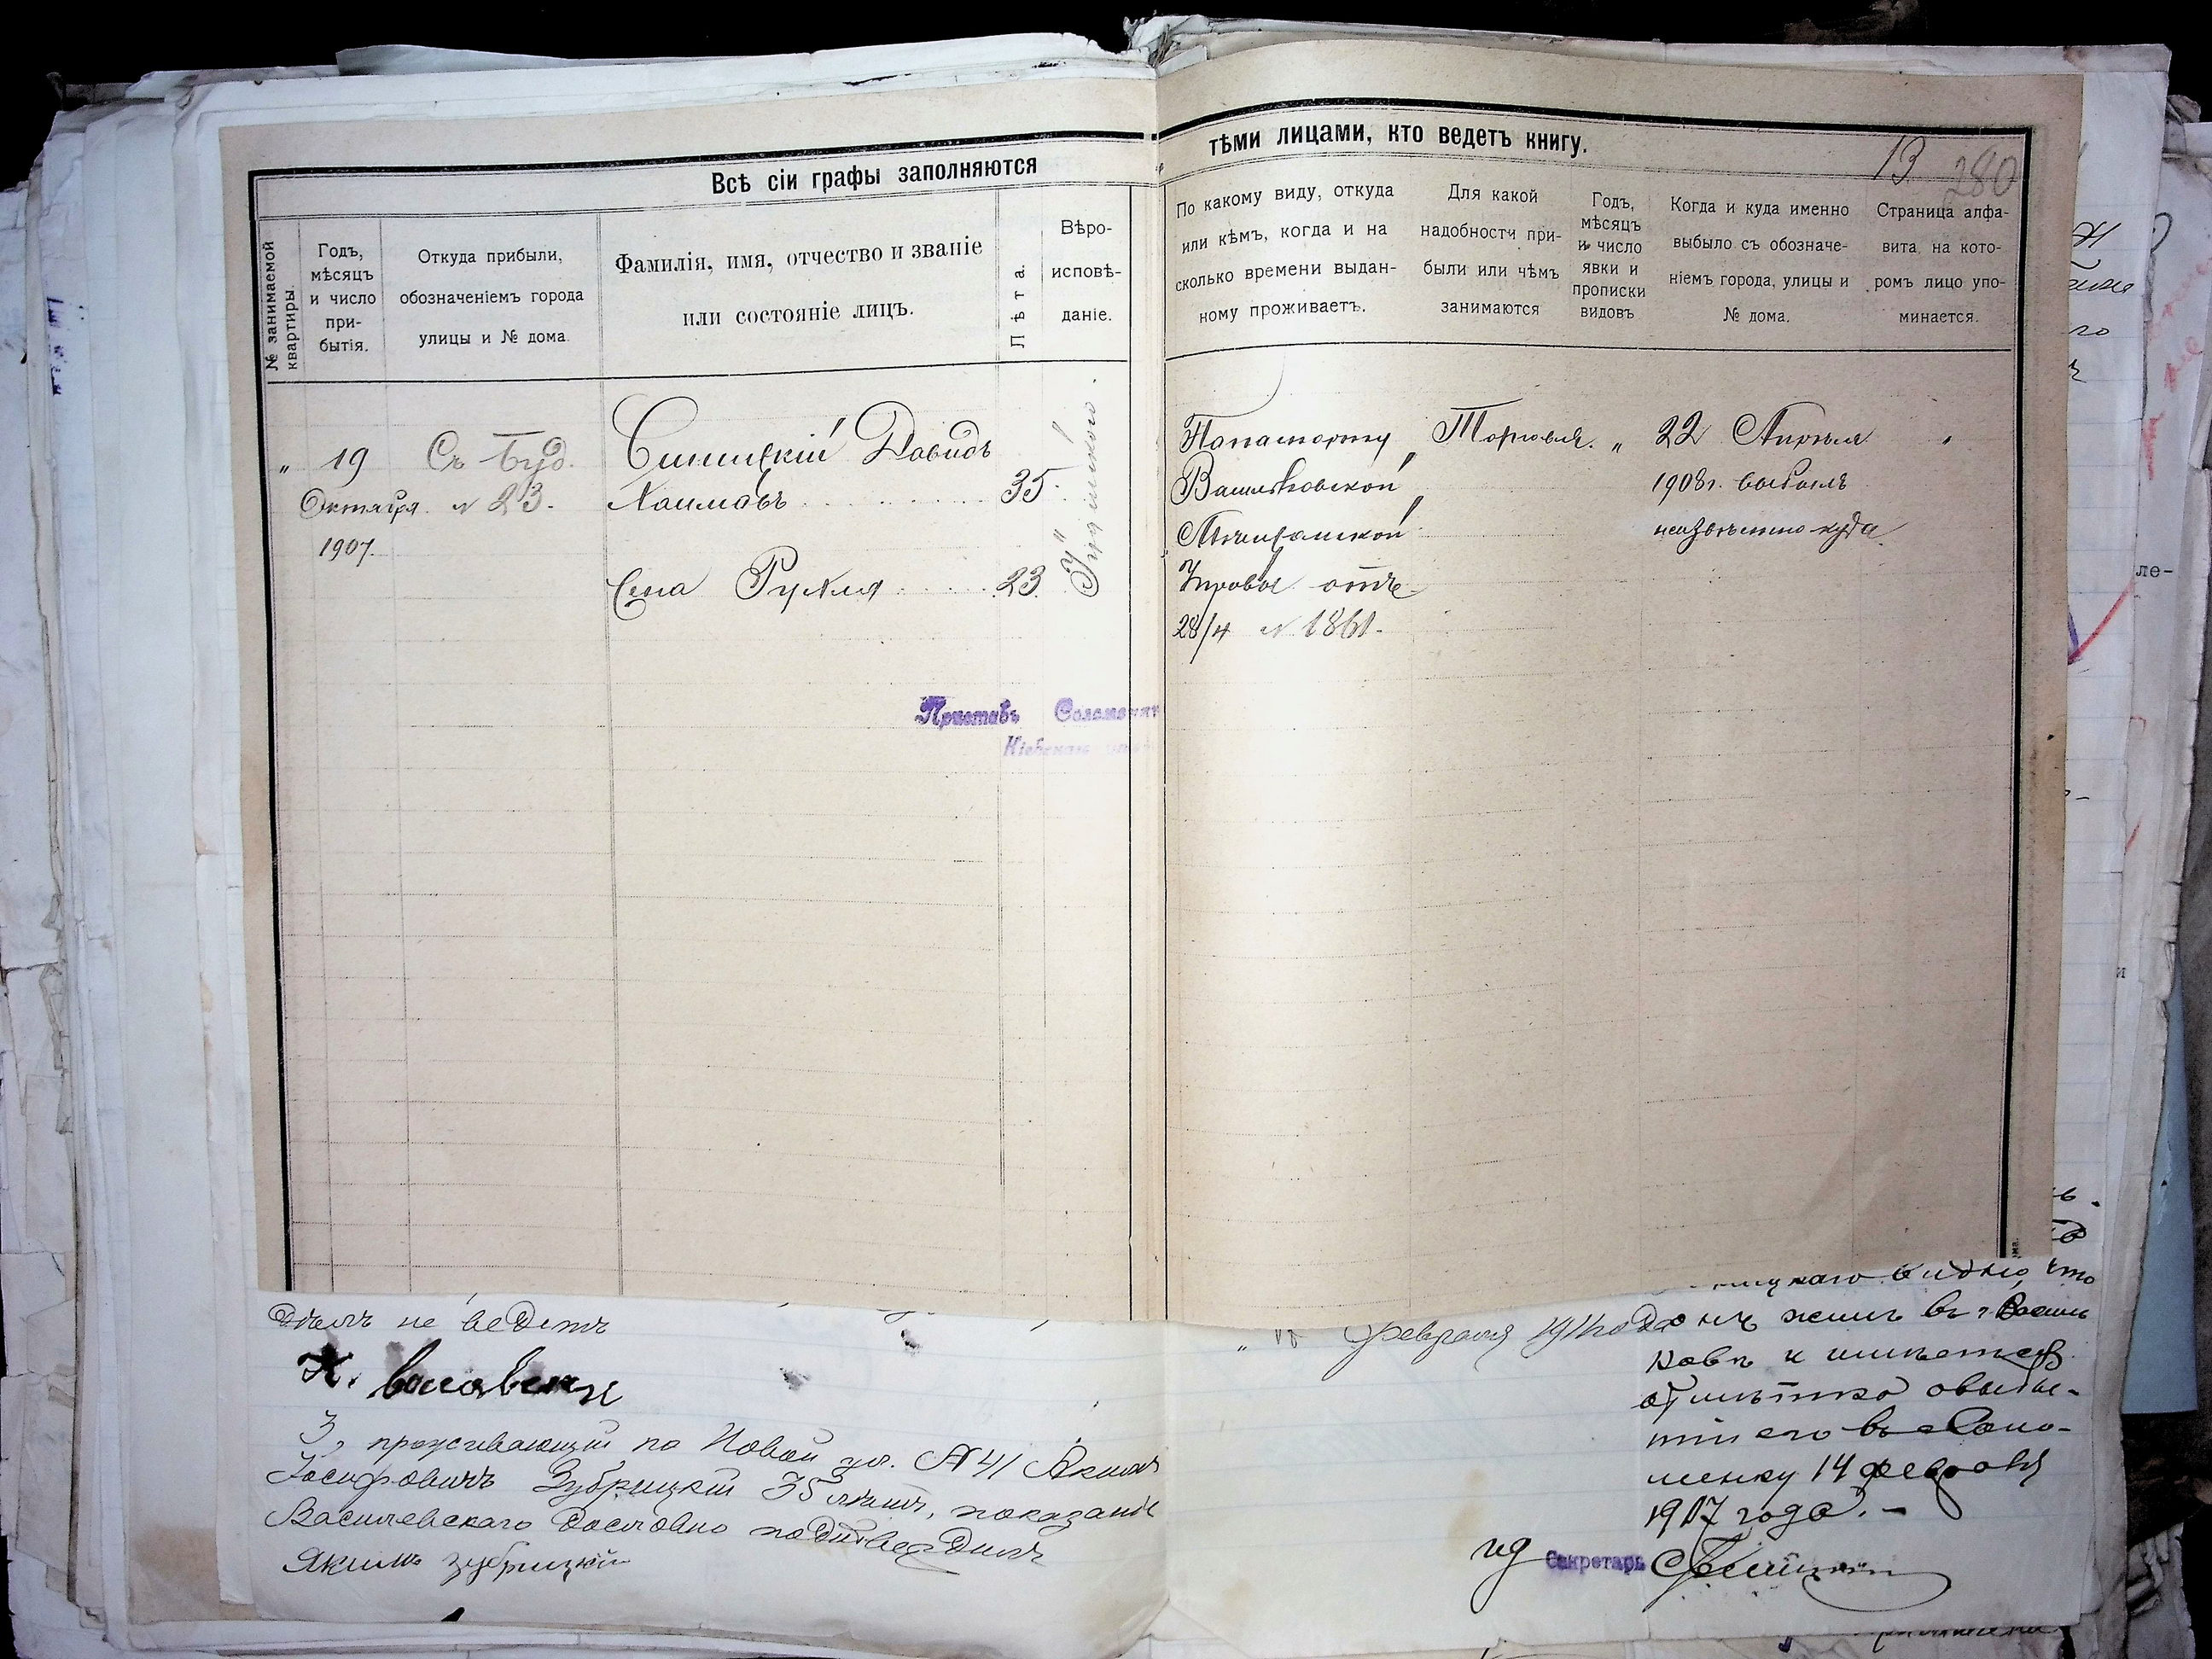 Всѣ сіи графы заполняются
тѣми лицами, кто ведетъ книгу.
13
280
№ занимаемой
квартиры.
Годъ,
мѣсяцъ
и число
при-
бытія.
Откуда прибыли,
обозначеніемъ города
улицы и № дома.
Фамилія, имя, отчество и званіе
или состояніе лицъ.
Лѣта.
Вѣро-
исповѣ-
даніе.
По какому виду, откуда
или кѣмъ, когда и на
сколько времени выдан-
ному проживаетъ.
Для какой
надобности при-
были или чѣмъ
занимаются
Годъ,
мѣсяцъ
и число
явки и
прописки
видовъ
Когда и куда именно
выбыло съ обозначе-
ніемъ города, улицы и
№ дома.
Страница алфа-
вита, на кото-
ромъ лицо упо-
минается.
„ 19
Октября
1907.
Съ Буд.
№ 23.
Синицкій Давидъ
Хаимовъ 35
Жена Рухля 23
Іудейского.
Попаспорту
Васильковской
Мѣщанской
Управы отъ
28/4 № 1861.
Торговля. „
22 Апрѣля
1908г. выбылъ
неизвѣстно куда
Приставъ
Кіевскаго
дѣлъ не ведетъ
3, проживающій по Новой ул. № 41 Якимъ
Іосифовичъ Зубрицкій 35 лѣтъ, показаніе
Василевскаго дословно подтвердилъ
Якимъ Зубрицкій
февраля
видно, что
онъ жилъ въ г. Василь
ковѣ и имѣется
отмѣтка о выбы-
тіи его въ Соло-
менку 14 февраля
1907 года. –
ид Секретарь